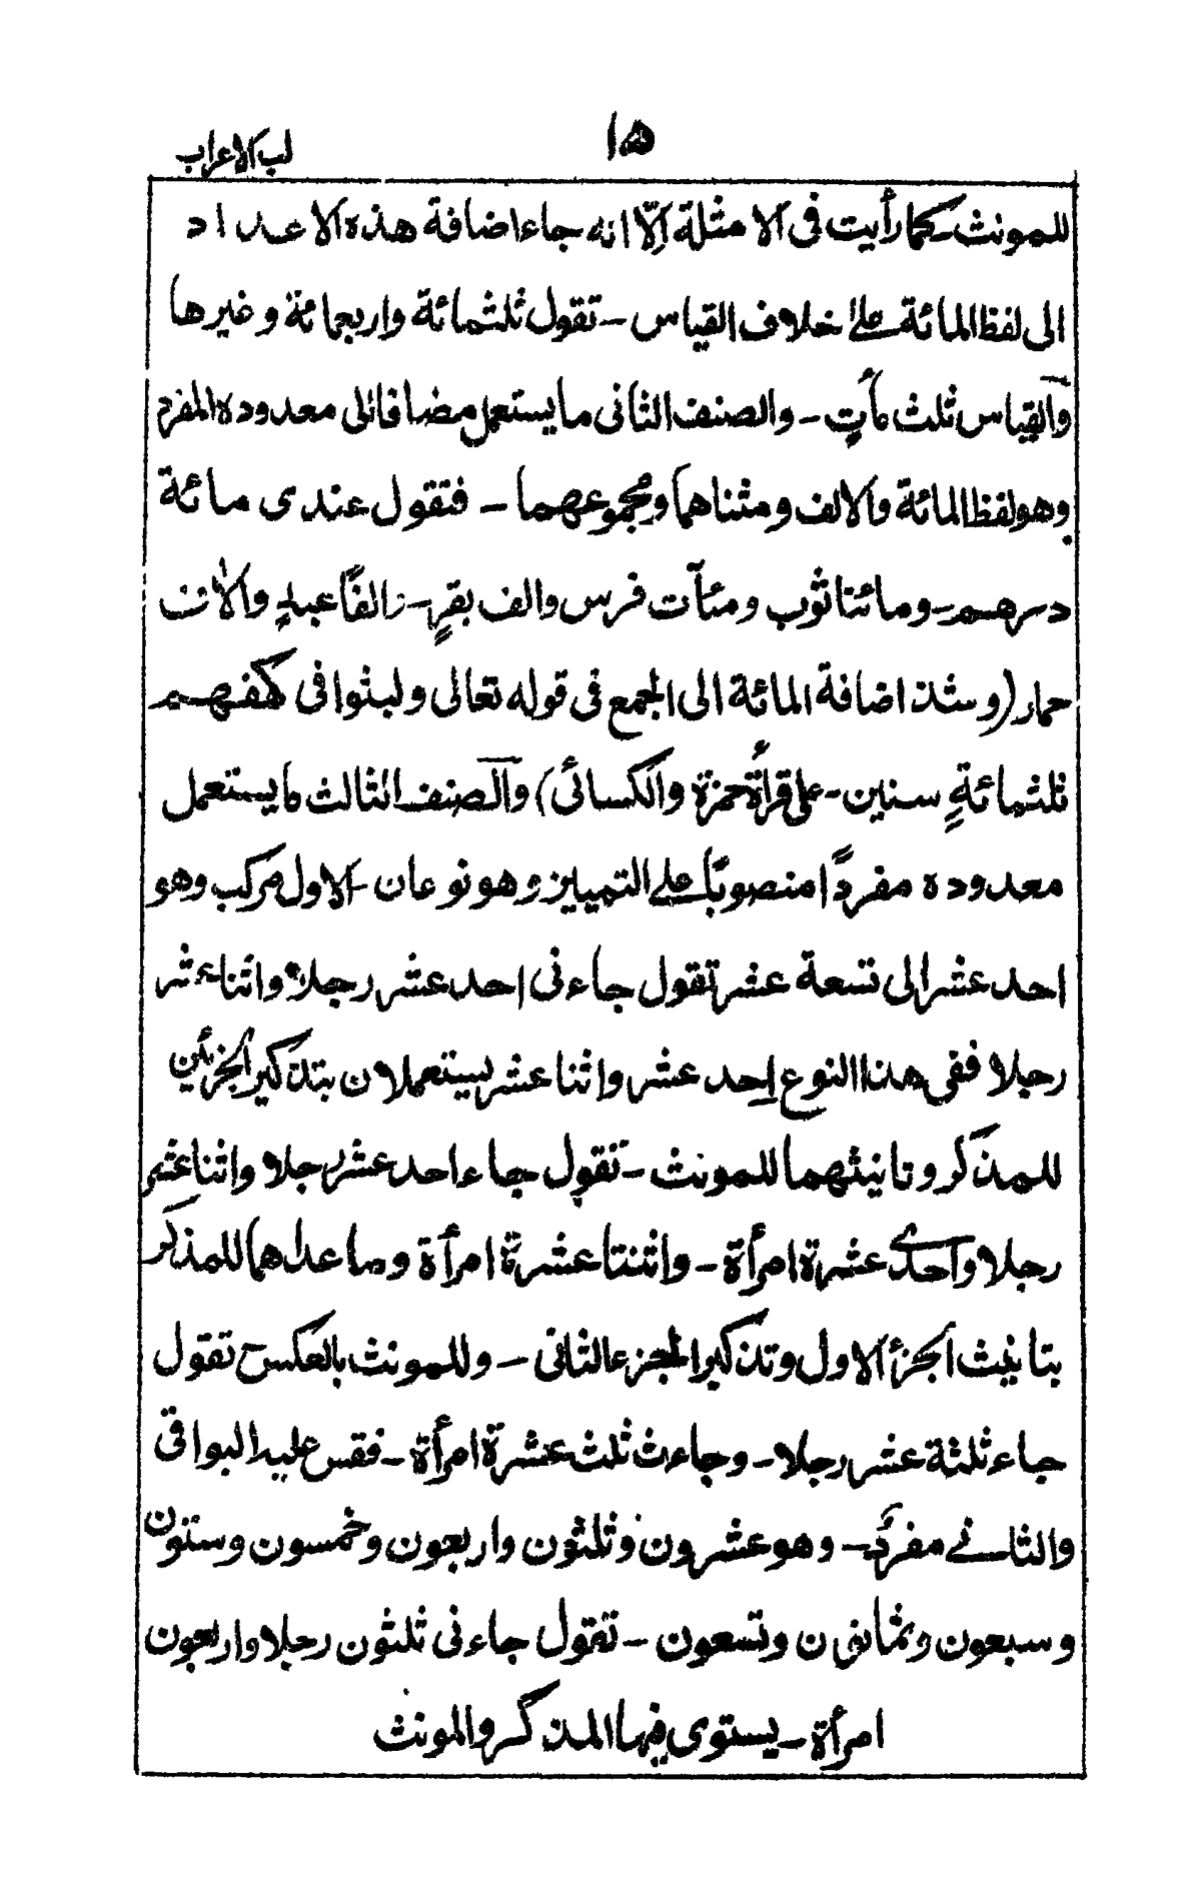 ١٥
لب الاعراب
للمونث ـ كما رأيت فى الامثلة اِلّا انه جاء اضافة هذه الاعداد
الى لفظ المائة على خلاف القياس ـ تقول ثلثمائة واربعمائة وغيرها
والقياس ثلث مأتٍ ـ والصنف الثانى ما يستعمل مضافا الى معدوده المفرد
وهو لفظ المائة والالف ومثناهما ومجموعهما ـ فتقول عندى مائة
درهم ـ ومائتا ثوب ومئآت فرس والف بقرٍ ـ الفًا عبدٍ والاٰف
حمار (وشذ اضافة المائة الى الجمع فى قوله تعالى ولبثوا فى كهفهم
ثلثمائةِ سنين ـ على قرأة حمزة والكسائى) والصنف الثالث ما يستعمل
معدوده مفردًا منصوبًا على التمييز وهو نوعان ـ الاول مركب وهو
احد عشر الى تسعة عشر تقول جاءنى احد عشر رجلا واثنا عشر
رجلا ففى هذا النوع احد عشر واثنا عشر يستعملان بتذكير الجزئين
للمذكر وتانيثهما للمونث ـ تقول جاء احد عشر رجلا واثنا عشر
رجلا واحدى عشرة امرأة ـ واثنتا عشرة امرأة وما عداهما للمذكر
بتانيث الجزأ الاول وتذكير الجزء الثانى ـ وللمونث بالعكس تقول
جاء ثلثة عشر رجلا ـ وجاءت ثلث عشرة امرأة ـ فقس عليه البواقى
والثانى مفردٌ ـ وهو عشرون وثلثون واربعون وخمسون وستون
وسبعون وثمانون وتسعون ـ تقول جاءنى ثلثون رجلا واربعون
امرأة ـ يستوى فيها المذكر والمونث